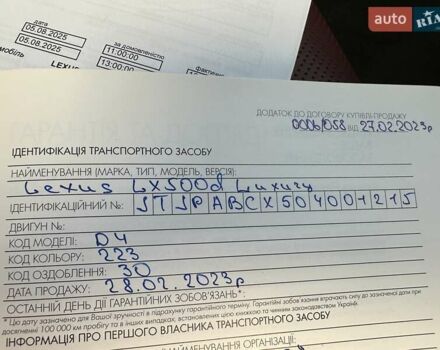 auto RIA
дата
за домовленістю
05.08.2025
11:00:00
05.08.2025
13:00:00
LEXUS
ДОДАТОК ДО ДОГОВОРУ КУПІВЛІ-ПРОДАЖУ
0006/058 ВІД 27.02.2023р
ІДЕНТИФІКАЦІЯ ТРАНСПОРТНОГО ЗАСОБУ
НАЙМЕНУВАННЯ (МАРКА, ТИП, МОДЕЛЬ, ВЕРСІЯ):
Lexus LX500d Luxury
ІДЕНТИФІКАЦІЙНИЙ №: JTJPABCX504001215
ДВИГУН №:
КОД МОДЕЛІ: D4
КОД КОЛЬОРУ: 223
КОД ОЗДОБЛЕННЯ: 30
ДАТА ПРОДАЖУ: 28.02.2023р
ОСТАННІЙ ДЕНЬ ДІЇ ГАРАНТІЙНИХ ЗОБОВ'ЯЗАНЬ*:
* Цю дату зазначено для Вашої зручності в підрахунку гарантійного терміну. Гарантійні зобов'язання втрачають силу до зазначеної дати при
досягненні 100 000 км пробігу та в інших випадках, встановлених цією книжкою та чинним законодавством України.
ІНФОРМАЦІЯ ПРО ПЕРШОГО ВЛАСНИКА ТРАНСПОРТНОГО ЗАСОБУ